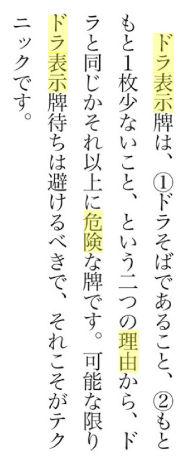 ドラ表示牌は、①ドラそばであること、②もと
もと１枚少ないこと、という二つの理由から、ド
ラと同じかそれ以上に危険な牌です。可能な限り
ドラ表示牌待ちは避けるべきで、それこそがテク
ニックです。